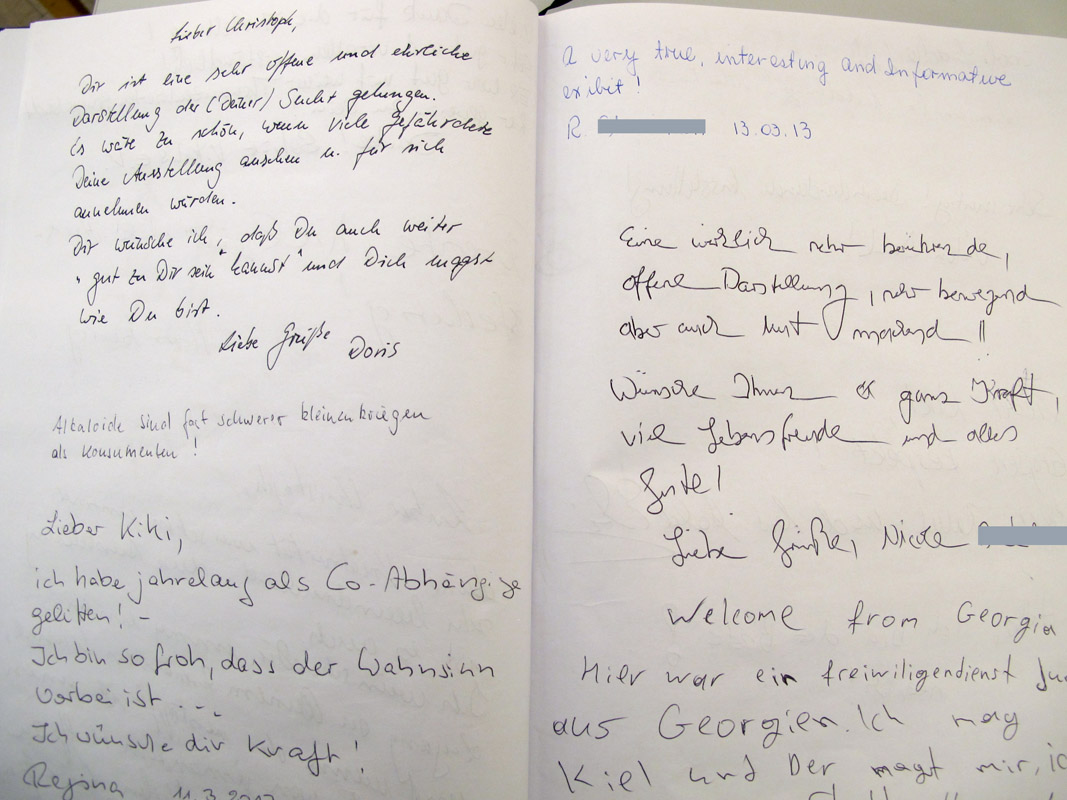 Lieber Christoph,
Dir ist eine sehr offene und ehrliche
Darstellung der (Deiner) Sucht gelungen.
Es wäre zu schön, wenn viele Gefährdete
Deine Ausstellung ansehen u. für sich
annehmen würden.
Dir wünsche ich, daß Du auch weiter
"gut zu Dir sein kannst" und Dich magst
wie Du bist.
Liebe Grüße Doris
Alkaloide sind fast schwerer kleinzukriegen
als Konsumenten!
Lieber Kiki,
ich habe jahrelang als Co-Abhängige
gelitten! -
Ich bin so froh, dass der Wahnsinn
vorbei ist ...
Ich wünsche dir Kraft!
Regina 11.3.2013
A very true, interesting and Informative
exibit!
R. 13.03.13
Eine wirklich sehr berührende,
offene Darstellung, sehr bewegend
aber auch Mut machend!!
Wünsche Ihnen ganz Kraft,
viel Lebensfreude und alles
Gute!
Liebe Grüße, Nicole
Welcome from Georgia
Hier war ein freiwiligendienst
aus Georgien. Ich mag
Kiel und Der magt mir,